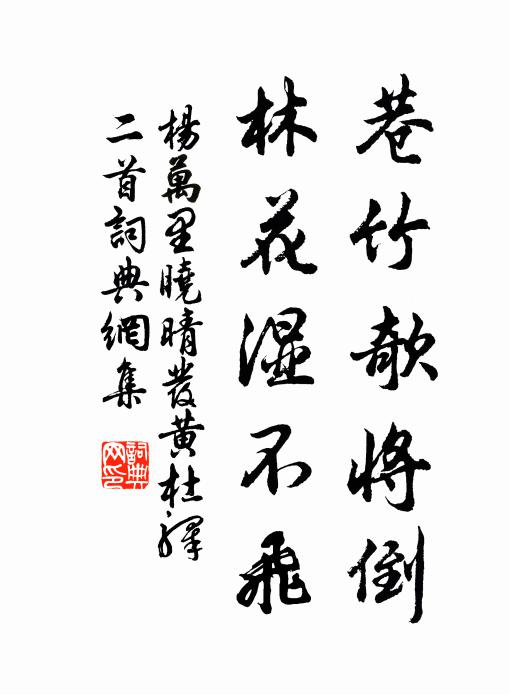 巷竹欹將倒
林花濕不飛
楊萬里曉晴發黃杜驛
二首詞典網集
詞典
网印